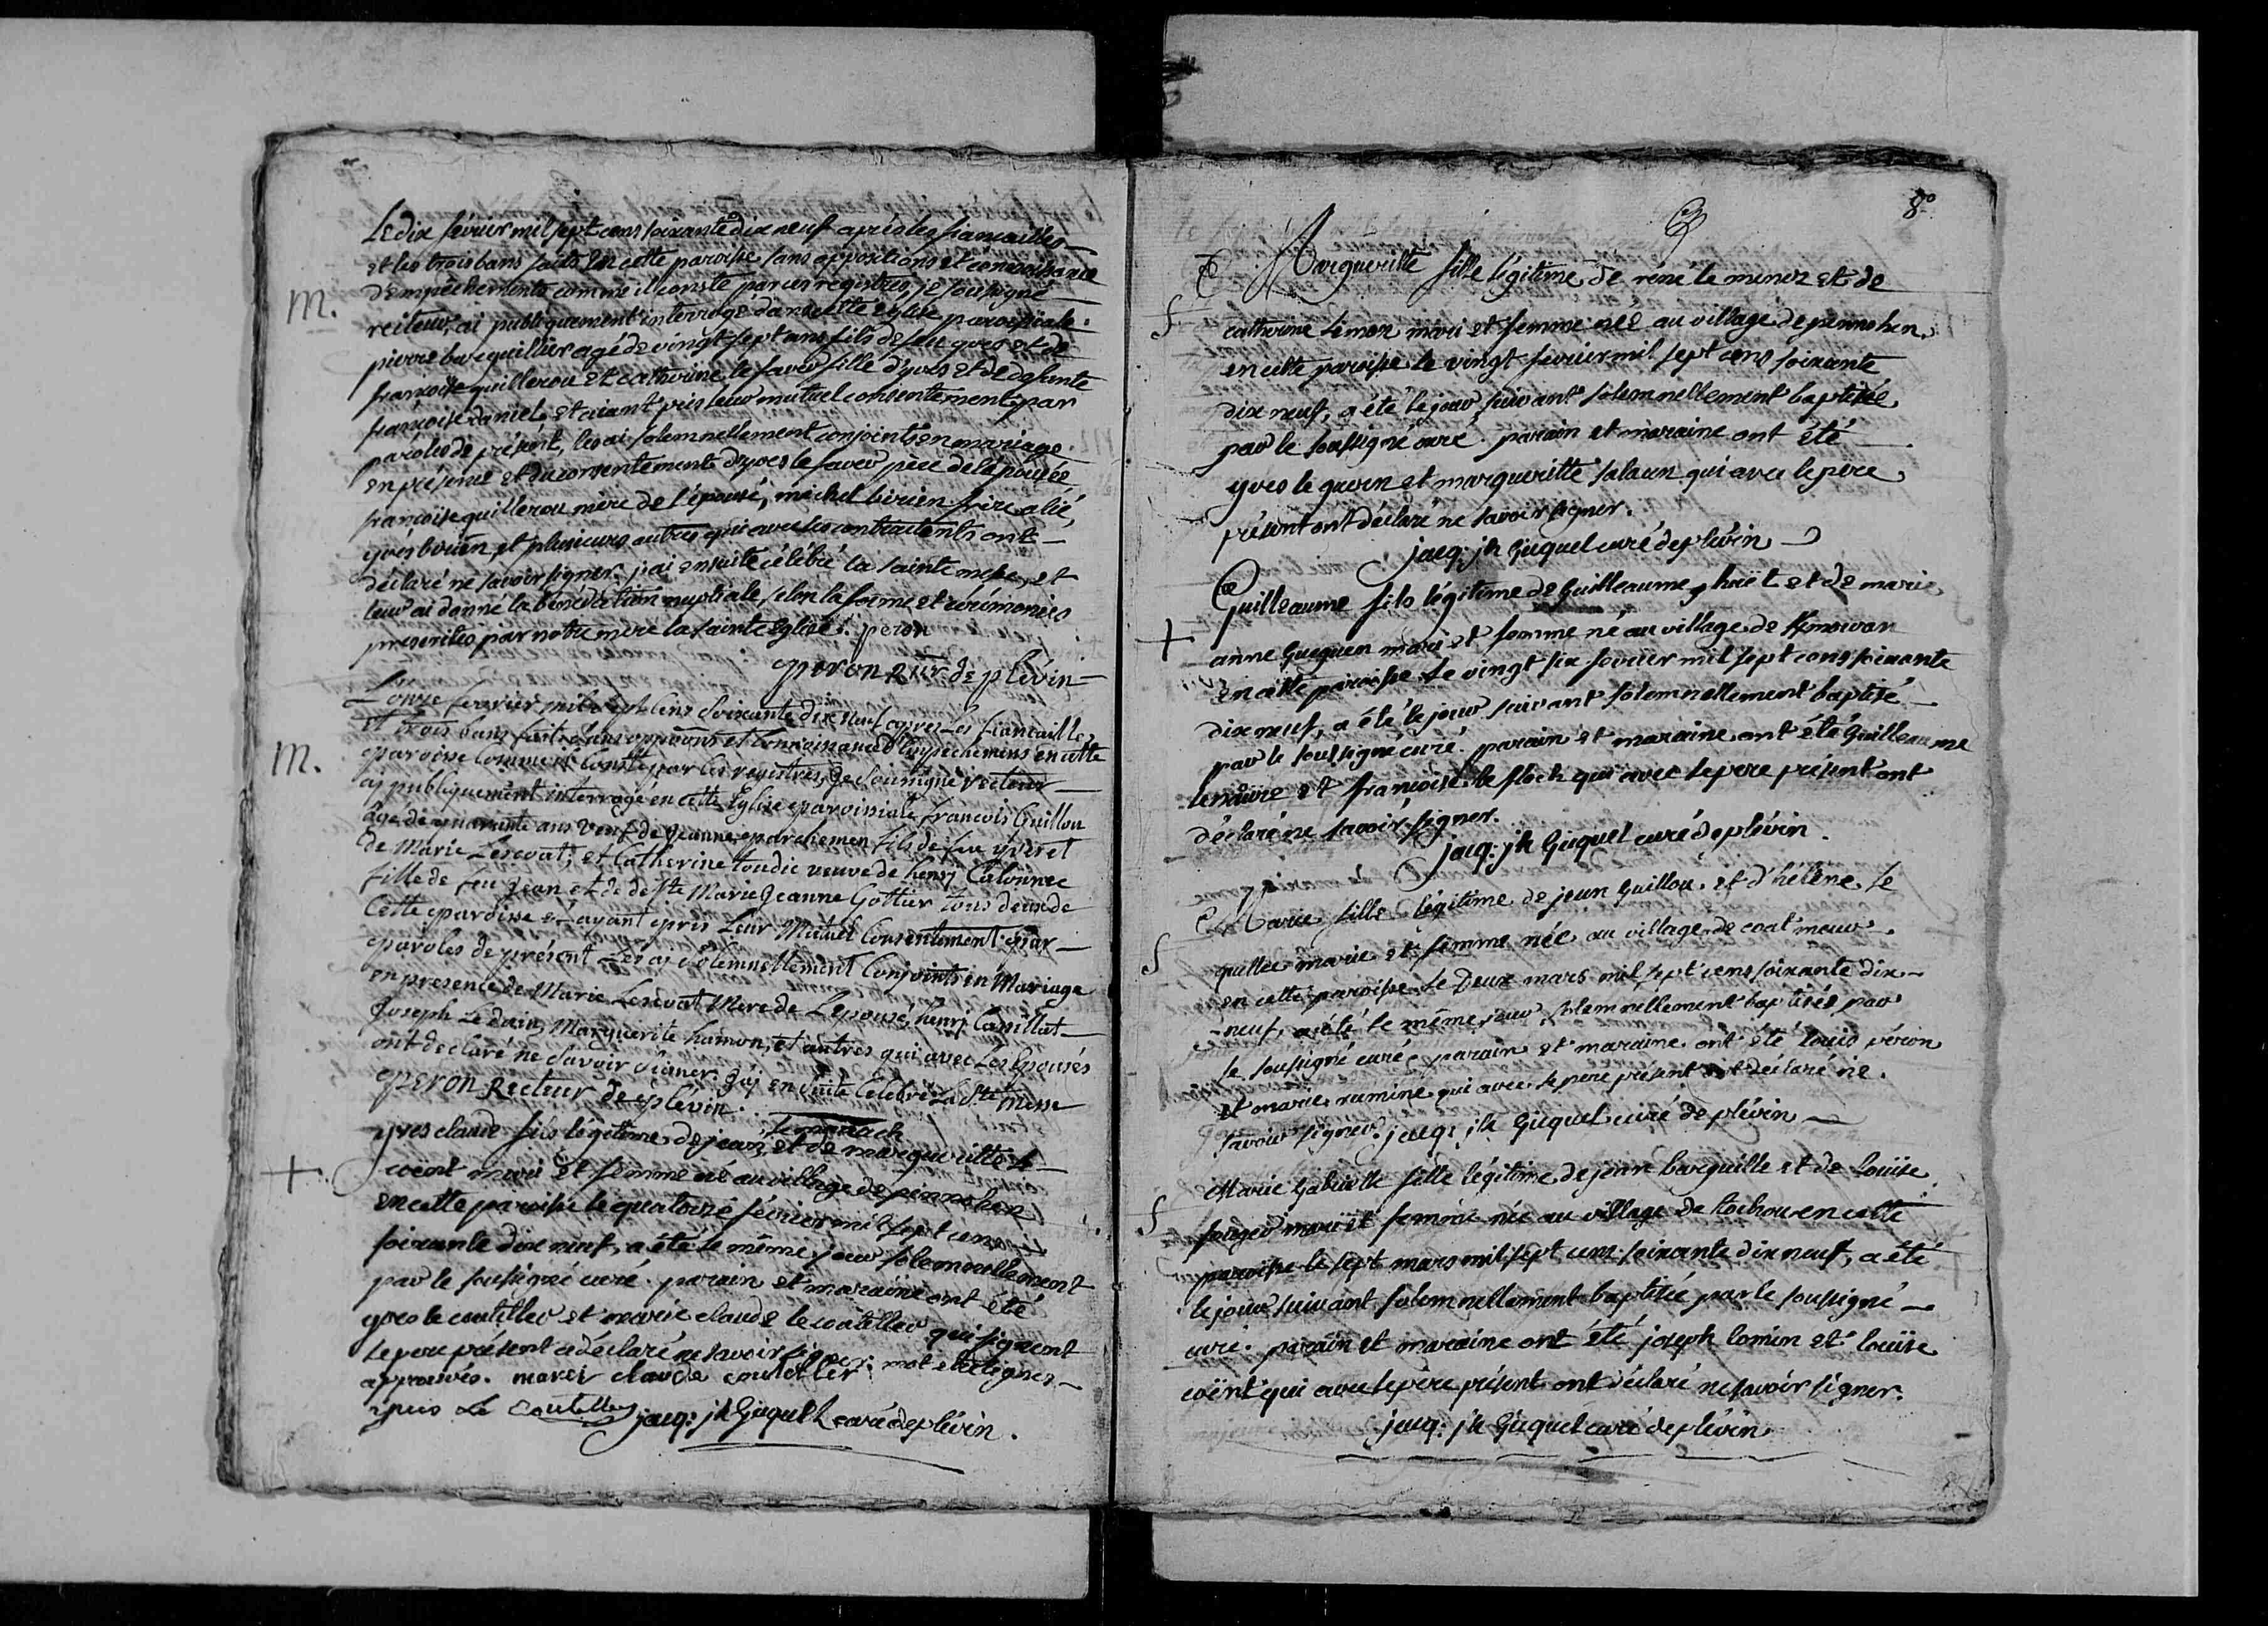 Le dix février mil sept cens soixante dix neuf après les fiancailles
et les trois bans faits en cette paroisse sans oppositions et connoissance
d'empêchements comme il conste par ces registres, je soussigné
M.
recteur, ai publiquement interrogé dans cette église paroissiale
pierre barguillier agé de vingt sept ans fils de feu yves et de
francoise guillerou et catherine le faver fille d'yves et de défunte
francoise daniel, et aiant pris leur mutuel consentement par
paroles de présent, les ai solemnellement conjoints en mariage
en présence et du consentement d'yves le faver père de l'épousée
francoise guillerou mère de l'épousé, michel birien frère alié,
yves bouën, et plusieurs autres qui avec les contractents ont
déclaré ne savoir signer. j'ai ensuite célébré la sainte messe, et
leur ai donné la bénédiction nuptiale, selon la forme et cérémonies
prescrites par notre mère la sainte Eglise. peron
peron Rtr de plévin
L'onze fevrier mil sept Cens Soixante dix neuf apres Les fiancailles
et trois bans faits sans oppoons et Connoissance d'Empechemens en cette
M.
paroisse Comme il Conste par les registres, Je Soussigné recteur
aj publiquement interrogé en cette Eglise paroissiale francois Guillou
âgé de quarante ans Veuf de Jeanne parchemen fils de feu yves et
de Marie Lescoat, et Catherine toudic veuve de henrj Calonnec
fille de feu Jean et de defte Marie Jeanne Gottier tous deux de
Cette paroisse et ayant pris Leur Mutuel Consentement par
paroles de présent Les aj Solemnellement Conjoints en Mariage
en presence de Marie Lescoat Mere de Lepousé, henrj Canillat
Joseph Le duin, Marguerite hamon, et autres qui avec Les Epousés
ont declaré ne Savoir Signer. J'aj en suite Celebré La Ste Messe
peron Recteur de plévin.
le manach
yves claude fils légitime de jean, et de margueritte le
+
coënt mari et femme né au village de pennohen
en cette paroisse le quatorze février mil sept cens
soixante dix neuf, a été le même jour solemnellement
par le soussigné curé. parain et maraine ont été
yves le coutiller et marie claude le coutiller qui signent
le père présent a déclaré ne savoir signer. mot et lignes
approuvés. mareï claude couteller
yves Le Coutelle jacq: jh Gicquel curé de plévin.
8
Margueritte fille légitime de réné le menez et de
S
catherine lemon mari et femme née au village de pennohen
en cette paroisse le vingt fevrier mil sept cens soixante
dix neuf, a été le jour suivant solemnellement baptisée
par le soussigné curé. parain et maraine ont été
yves le guern et margueritte salaun qui avec le père
présent ont déclaré ne savoir signer.
jacq: jh Gicquel curé de plévin
Guilleaume fils légitime de Guilleaume huët et de marie
+
anne Gueguen mari et femme né au village de
en cette paroisse le vingt six fevrier mil sept cens soixante
dix neuf, a été le jour suivant solemnellement baptisé
par le soussigné curé. parain et maraine ont été Guilleaume
lemaire et francoise le floch qui avec le père présent ont
déclaré ne savoir signer.
jacq: jh Gicquel curé de plévin.
Marie fille légitime de jean Guillou et d'hélène le
S
quellec marie et femme née au village de coat meur
en cette paroisse le deux mars mil sept cens soixante dix
neuf, a été le même jour solemnellement baptisée par
le soussigné curé parain et maraine ont été louis péron
et marie rumine qui avec le père présent ont déclaré ne
savoir signer. jacq: jh Gicquel curé de plévin
Marie Gabrielle fille légitime de jean barguille et de louise
S
mari et femme née au village de en cette
paroisse le sept mars mil sept cens soixante dix neuf, a été
le jour suivant solemnellement baptisée par le soussigné
curé. parain et maraine ont été joseph lomin et louise
coënt qui avec le père présent ont déclaré ne savoir signer.
jacq: jh Gicquel curé de plévin